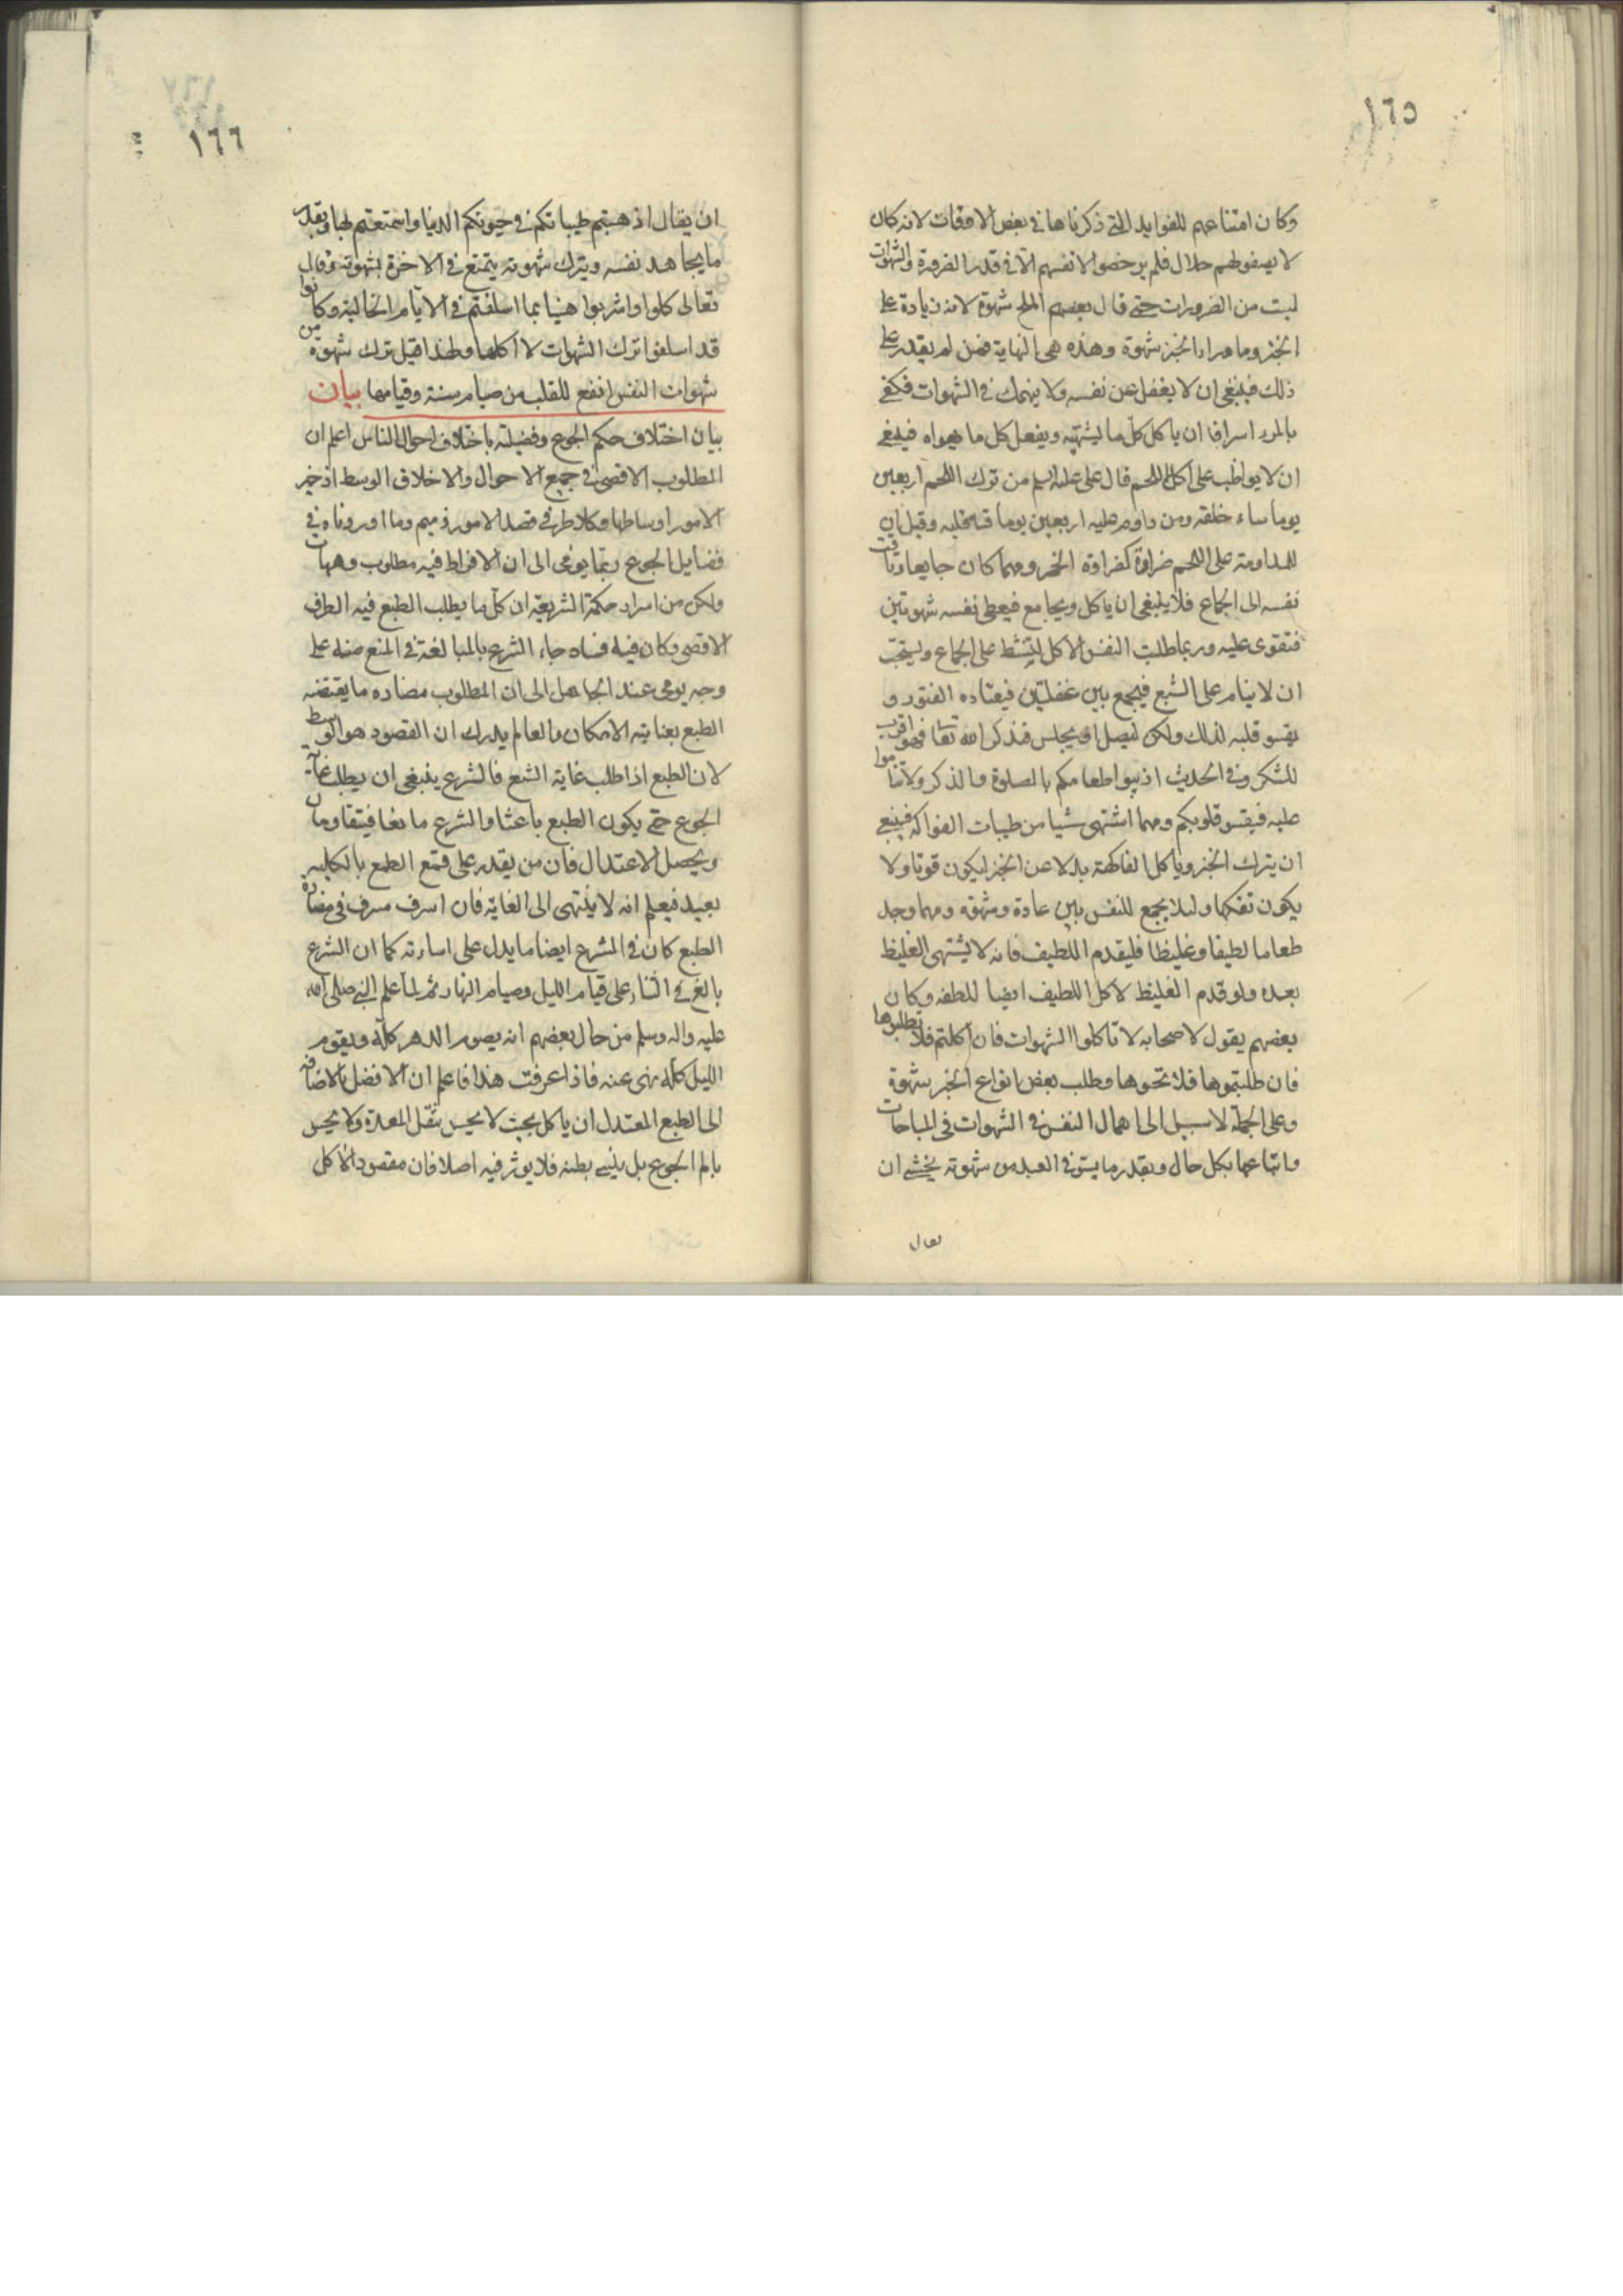 ١٦٥
وكان امتناعهم للفوايد التى ذكرناها فى بعض الاوقات لانه كان
لا يصفو لهم حلال فلم يرخصوا لانفسهم الا فى قدر الضرورة والشهوات
ليست من الضرورات حتى قال بعضهم الملح شهوة لانه زيادة على
الخبز وما وراء الخبز شهوة وهذه هى النهاية فمن لم يقدر على
ذلك فينبغى ان لا يغفل عن نفسه ولا ينهمك فى الشهوات فكفى
بالمرء اسرافا ان ياكل كلّ ما يشتهيه ويفعل كل ما يهواه فينبغى
ان لا يواظب على اكل اللحم قال على عليه السلم من ترك اللحم اربعين
يوما ساء خلقه ومن داوم عليه اربعين يوما قسا قلبه وقيل ان
للمداومة على اللحم ضراوة كضراوة الخمر ومهما كان جايعا وتاقت
نفسه الى الجماع فلا ينبغى ان ياكل ويجامع فيعطى نفسه شهوتين
فتقوى عليه وربما طلبت النفس الاكل لينشط على الجماع ويستحبّ
ان لا ينام على الشبع فيجمع بين غفلتين فيعتاده الفتور و
يقسو قلبه لذلك ولكن ليصل او يجلس فيذكر الله تعا فهو اقرب
للشكر وفى الحديث اذيبوا طعامكم بالصلوة والذكر ولا تناموا
عليه فيقس قلوبكم ومهما اشتهى شيا من طيبات الفواكه فينبغى
ان يترك الخبز وياكل الفاكهة بدلا عن الخبز ليكون قوتا ولا
يكون تفكها وليلا يجمع للنفس بين عادة وشهوة ومهما وجد
طعاما لطيفا وغليظا فليقدم اللطيف فانه لا يشتهى الغليظ
بعده ولو قدم الغليظ لاكل اللطيف ايضا للطفه وكان
بعضهم يقول لاصحابه لا تاكلوا الشهوات فان اكلتم فلا تطلبوها
فان طلبتموها فلا تحبوها وطلب بعض انواع الخبز شهوة
وعلى الجملة لا سبيل الى اهمال النفس فى الشهوات فى المباحات
واتباعها بكل حال وبقدر ما يستوفى العبد من شهوته يخشى ان
يقال
١٦٦
ان يقال اذهبتم طيباتكم فى حيوتكم الدنيا واستمتعتم بها وبقدر
ما يجاهد نفسه ويترك شهوته يتمتع فى الاخرة بشهوته وقال
تعالى كلوا واشربوا هنيا بما اسلفتم فى الايّام الخالية وكانوا
قد اسلفوا ترك الشهوات لا اكلها ولهذا قيل ترك شهوة من
شهوات النفس انفع للقلب من صيام سنة وقيامها بيان
بيان اختلاف حكم الجوع وفضيلته باختلاف احوال الناس اعلم ان
المطلوب الاقصى فى جميع الاحوال والاخلاق الوسط اذ خير
الامور اوساطها وكلا طرفى قصد الامور ذميم وما اوردناه فى
فضايل الجوع ربّما يومى الى ان الافراط فيه مطلوب وهيهات
ولكن من اسرار حكمة الشريعة ان كلّ ما يطلب الطبع فيه الطرف
الاقصى وكان فيه فساد جاء الشرع بالمبالغة فى المنع منه على
وجه يومى عند الجاهل الى ان المطلوب مضاده ما يقتضه
الطبع بغاية الامكان والعالم يدرك ان المقصود هو الوسط
لان الطبع اذا طلب غاية الشبع فالشرع ينبغى ان يطلب غاية
الجوع حتى يكون الطبع باعثا والشرع مانعا فيتقاومان
ويحصل الاعتدال فان من يقدر على قمع الطبع بالكلية
بعيد فيعلم انه لا ينتهى الى الغاية فان اسرف مسرف فى مضادة
الطبع كان فى الشرع ايضا ما يدل على اسارته كما ان الشرع
بالغ فى الثناء على قيام الليل وصيام النهار ثم لما علم النبى صلى الله
عليه واله وسلم من حال بعضهم انه يصوم الدهر كله ويقوم
الليل كله نهى عنه فاذا عرفت هذا فاعلم ان الافضل بالاضافة
الى الطبع المعتدل ان ياكل بحيث لا يحس بثقل المعدة ولا يحس
بالم الجوع بل ينسى بطنه فلا يوثر فيه اصلا فان مقصود الاكل